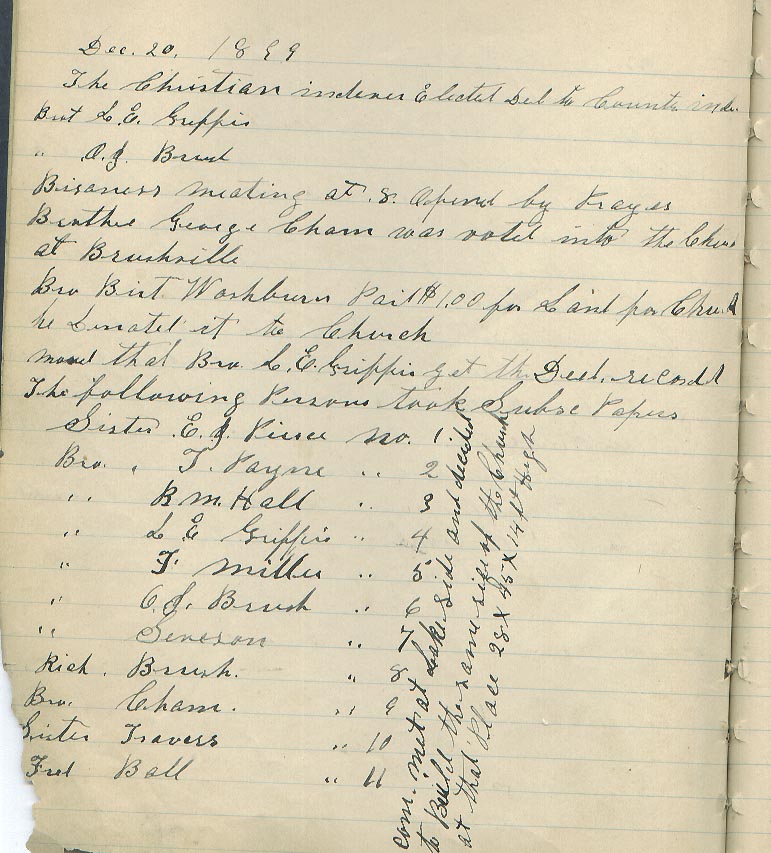 Dec. 20, 1899
The Christian indever Elected Del to County inde.
Brot L.E. Griffis
" O.J. Brush
Bisaness meating at 8. Opend by Prayer
Brothe George Cham was voted into the Chur
at Brushville
Bro Birt Washburn Paid $1.00 for Land for Church
he Donated it to Church
moved that Bro. L.E. Griffis get the Deed. record
The following Persons took Subsc Papers
Sister E.J. Pierce No. 1
Bro. " T. Payne " 2
" B.M. Hall " 3
" L E Griffis " 4
" T. Miller " 5
" O.J. Brush " 6
" " 7
Rich. Brush. " 8
Bro. Cham. " 9
Sister Travers " 10
Fred Ball " 11
Com. met at Lake Side and decided
to Build the same size of the Church
at that Place 28 X 45 X 14 ft High